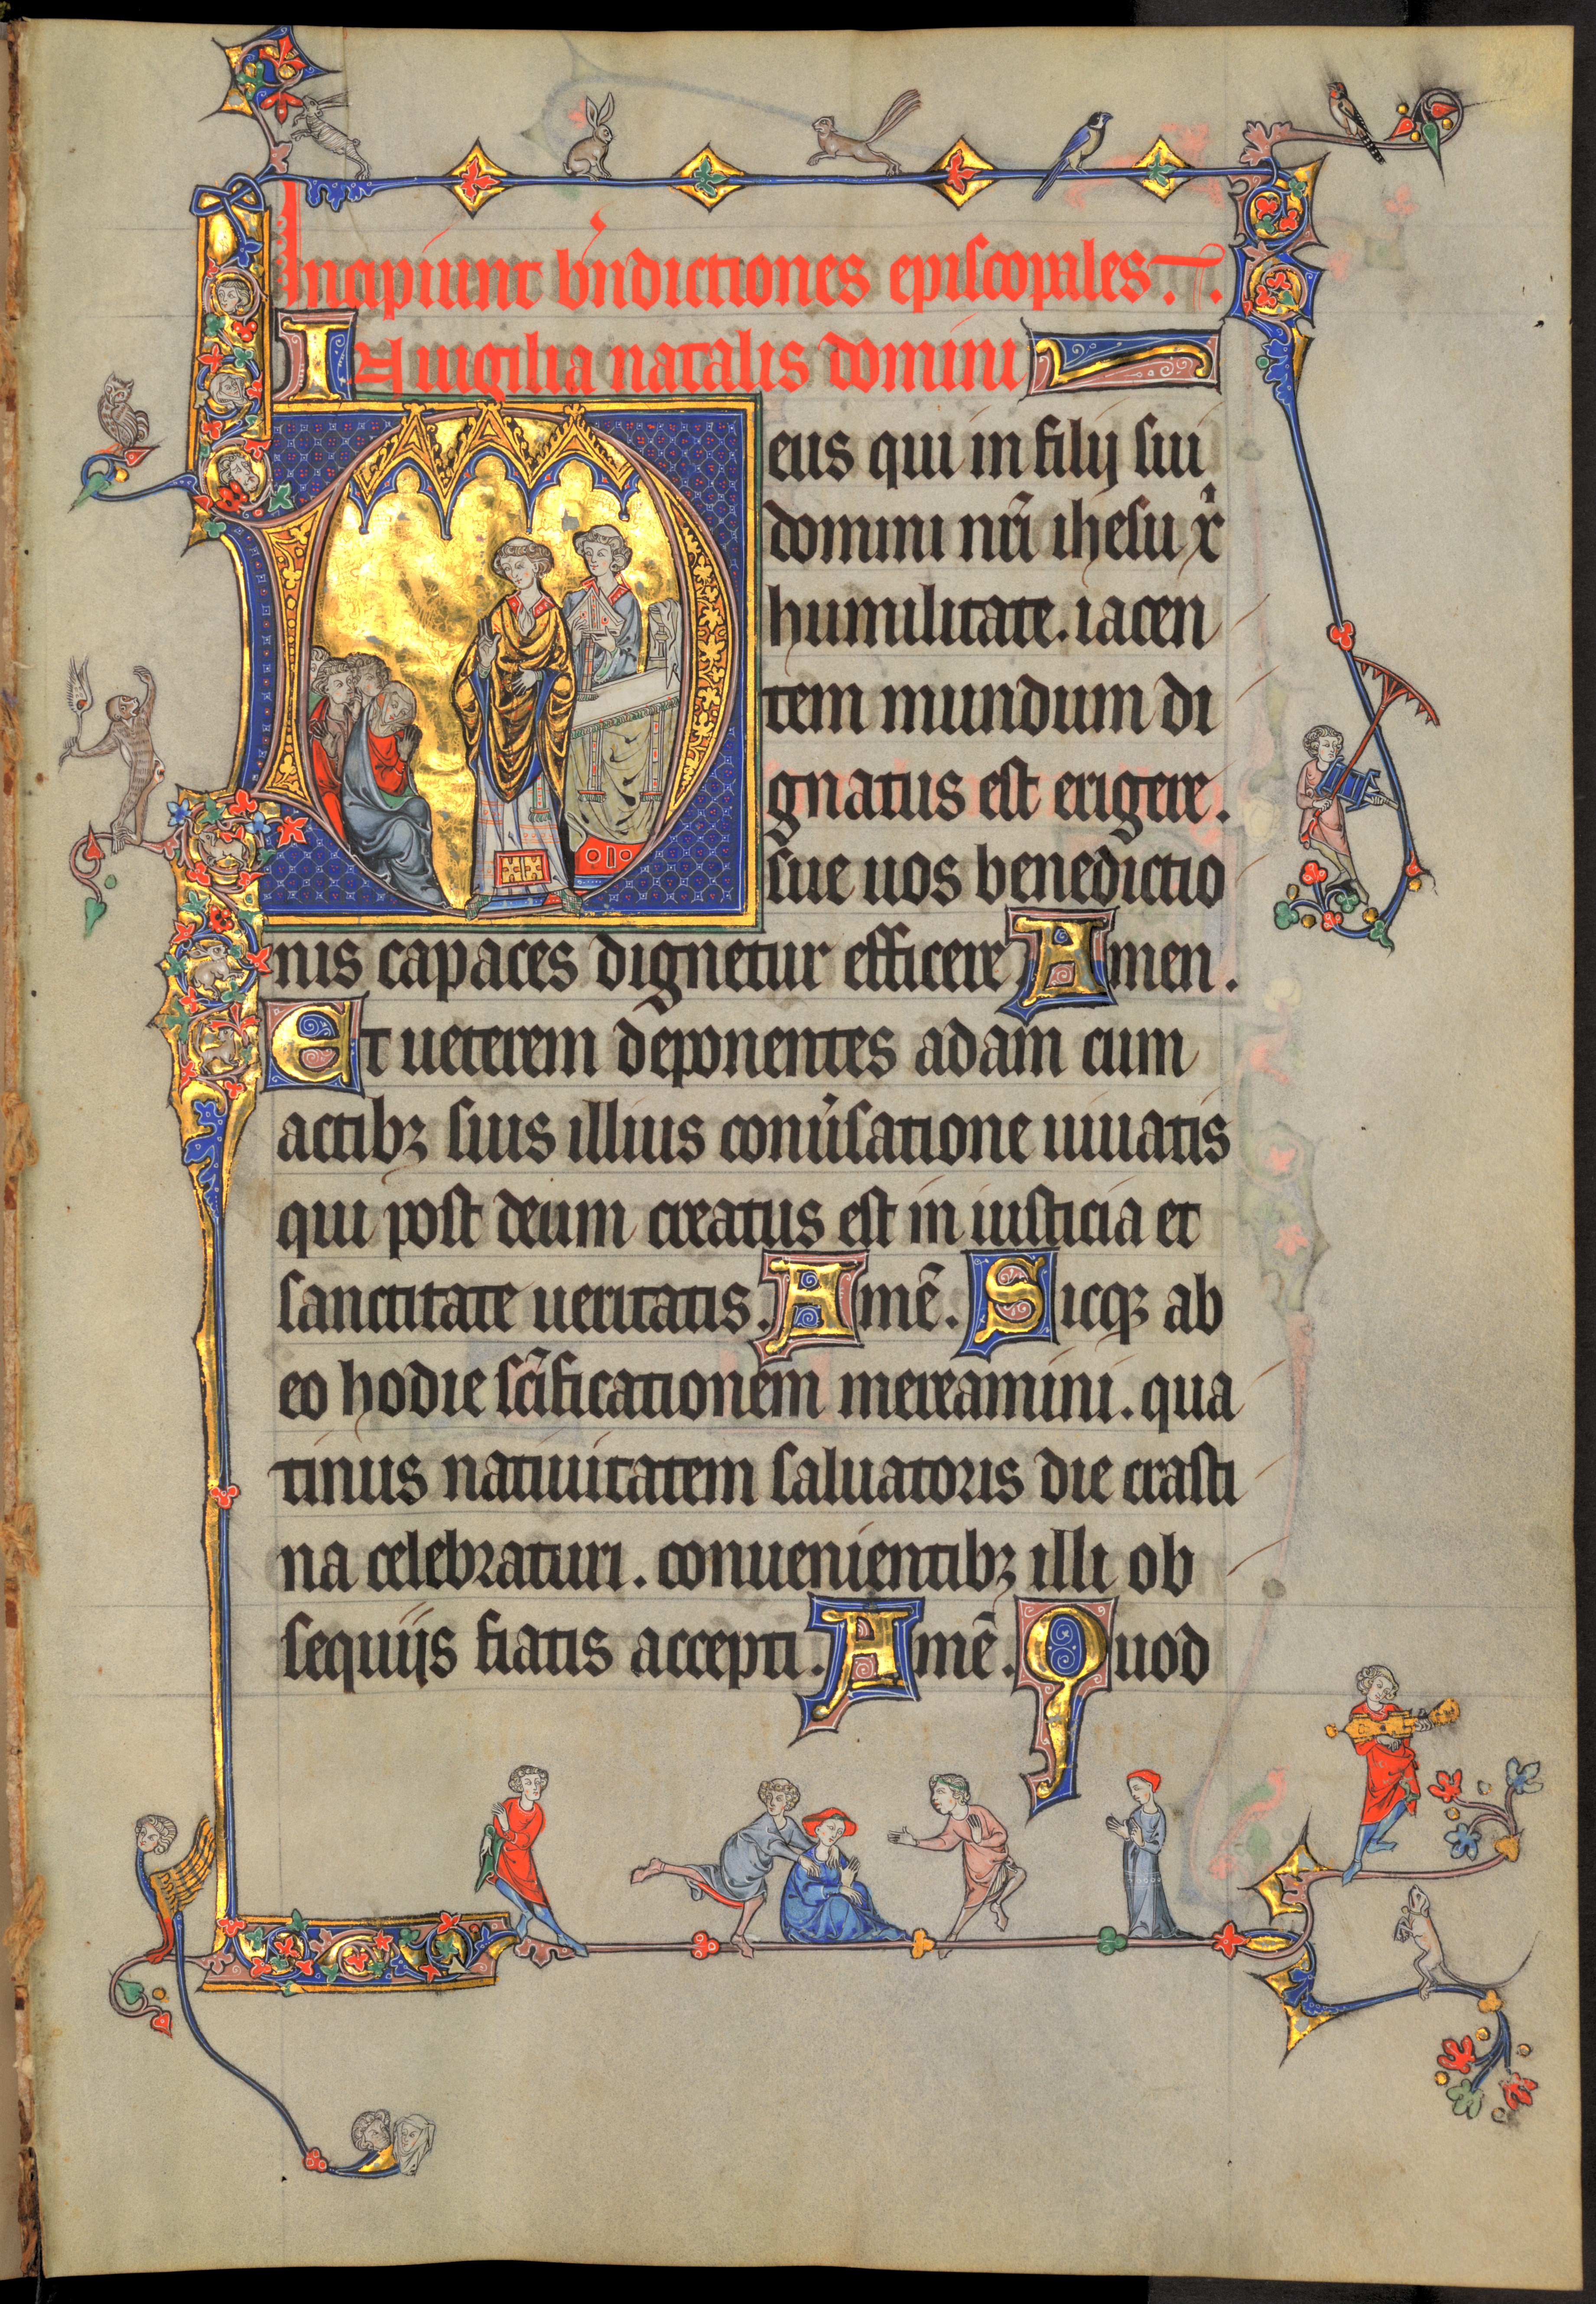 Incipiunt bn̄dictiones episcopales.
In uigilia natalis domini
Deus qui in filij sui
domini nr̄i ihesu xͥ
humilitate. iacen
tem mundum di
gnatus est erigere.
sue uos benedictio
nis capaces dignetur efficere. Amen.
Et ueterem deponentes adam cum
actibꝫ suis illius conu̾satione uiuatis
qui post deum creatus est in iusticia et
sanctitate ueritatis. Amē. Sicqꝫ ab
eo hodie sc̄ificationem mereamini. qua
tinus natiuitatem saluatoris die crasti
na celebraturi. conuenientibꝫ illi ob
sequijs fiatis accepti. Amē. Quod